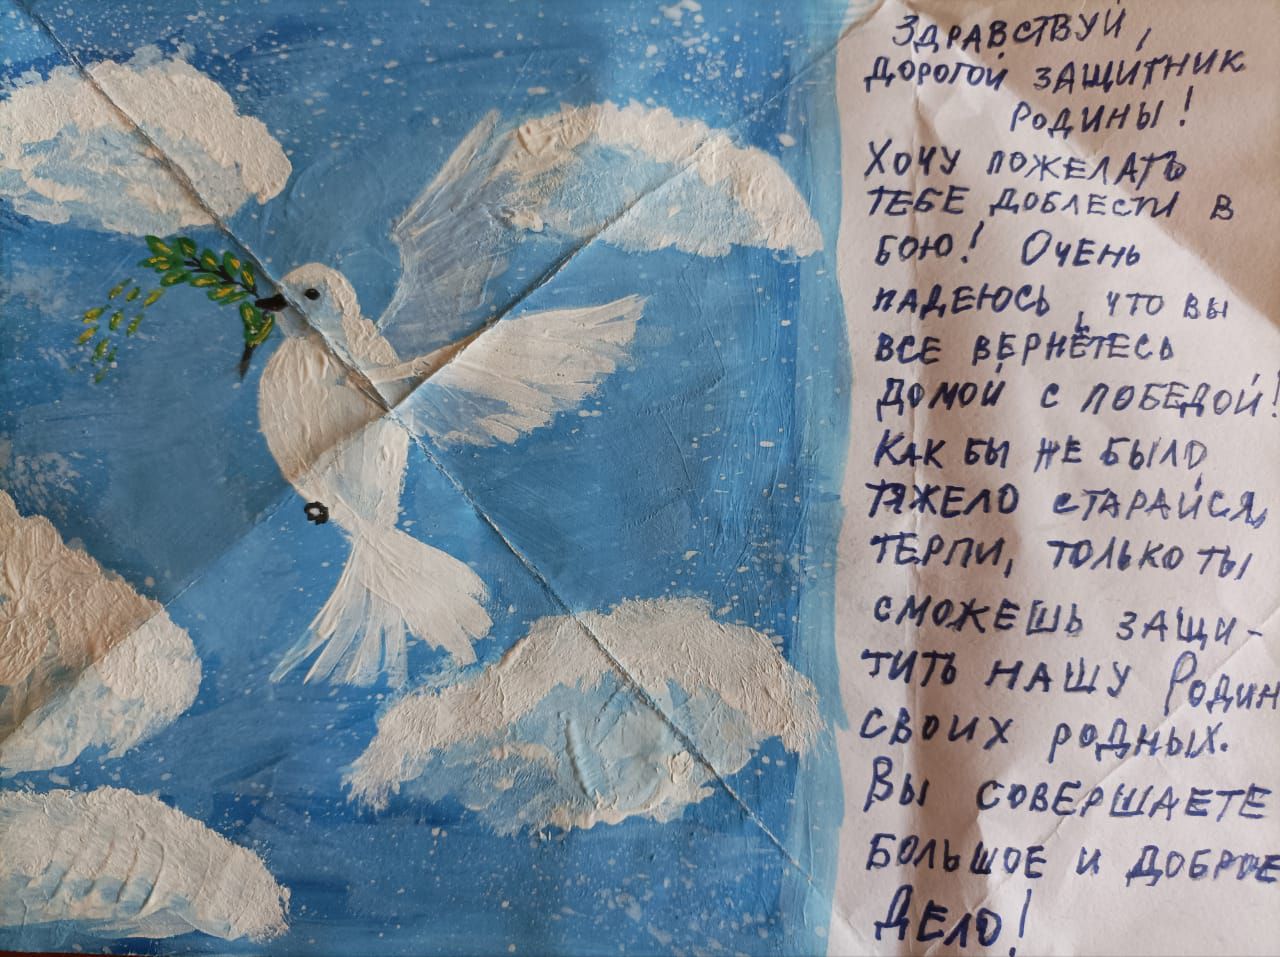 ЗДРАВСТВУЙ,
ДОРОГОЙ ЗАЩИТНИК
РОДИНЫ!
ХОЧУ ПОЖЕЛАТЬ
ТЕБЕ ДОБЛЕСТИ В
БОЮ! ОЧЕНЬ
НАДЕЮСЬ, ЧТО ВЫ
ВСЕ ВЕРНЁТЕСЬ
ДОМОЙ С ПОБЕДОЙ!
КАК БЫ НЕ БЫЛО
ТЯЖЕЛО СТАРАЙСЯ,
ТЕРПИ, ТОЛЬКО ТЫ
СМОЖЕШЬ ЗАЩИ-
ТИТЬ НАШУ РОДИН
СВОИХ РОДНЫХ.
ВЫ СОВЕРШАЕТЕ
БОЛЬШОЕ И ДОБРОЕ
ДЕЛО!